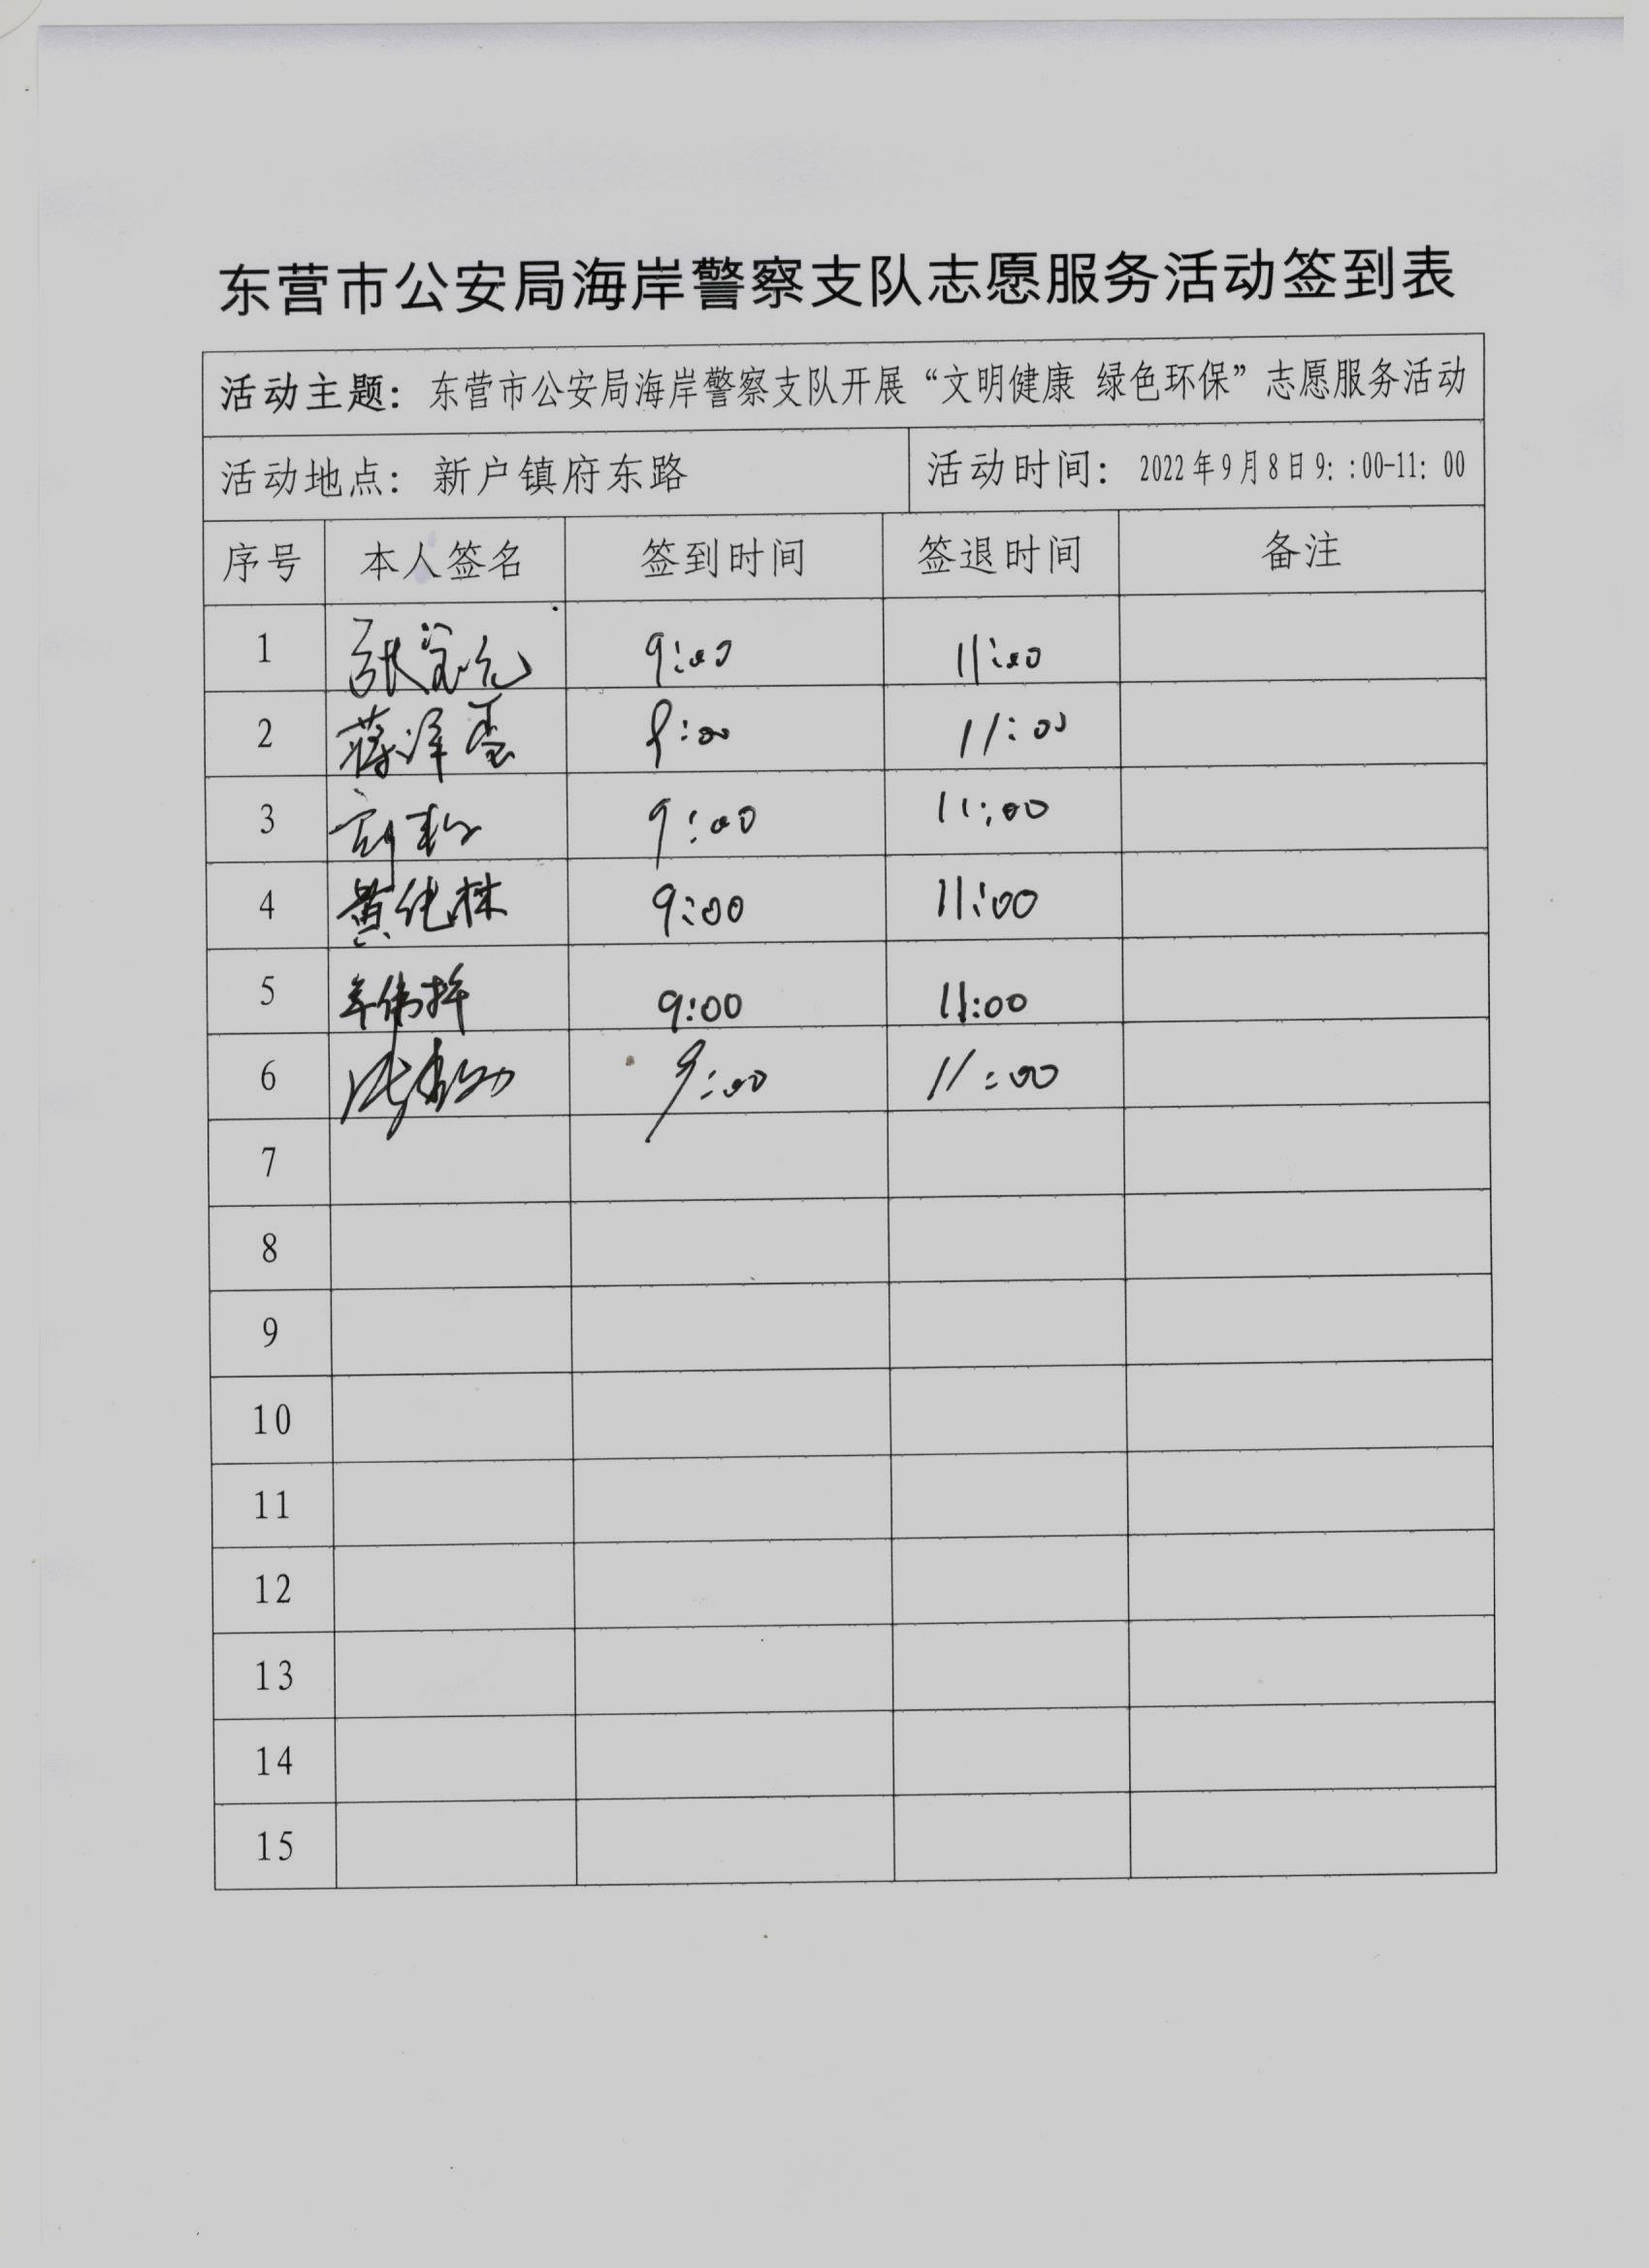 东营市公安局海岸警察支队志愿服务活动签到表
活动主题：东营市公安局海岸警察支队开展“文明健康 绿色环保”志愿服务活动
活动地点：新户镇府东路 活动时间：2022年9月8日9：:00-11：00
序号 本人签名 签到时间 签退时间 备注
1 9:00 11:00
2 9:00 11:00
3 9:00 11:00
4 9:00 11:00
5 9:00 11:00
6 9:00 11:00
7
8
9
10
11
12
13
14
15